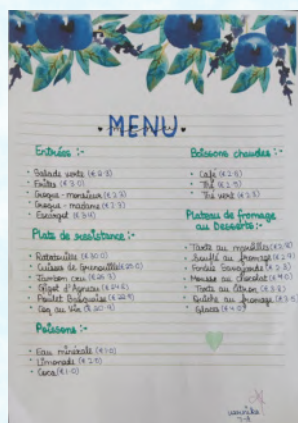 MENU
Entrées :-
• Salade verte (€ 2.3)
• Frites (€ 3.0)
• Croque-monsieur (€ 2.9)
• Croque-madame (€ 2.3)
• Escargot (€ 3.4)
Plats de resistance :-
• Ratatouille (€ 30.0)
• Cuisses de Grenouille
• Jambon cru
• Gigot d'Agneau
• Poulet Basquaise
• Coq au Vin (€ 20.9)
Poissons :-
• Eau minérale (€ 1.0)
• Limonade (€ 2.5)
• Coca (€ 1.0)
Boissons chaudes :-
• Café (€ 2.5)
• Thé (€ 2.5)
• Thé vert (€ 2.5)
Plateau de fromage
au Desserts :-
• Tarte au
• Souflé au fromage
• Fondue Savoyarde
• Mousse au chocolat
• Tarte au citron
• Quiche au fromage
• Glaces